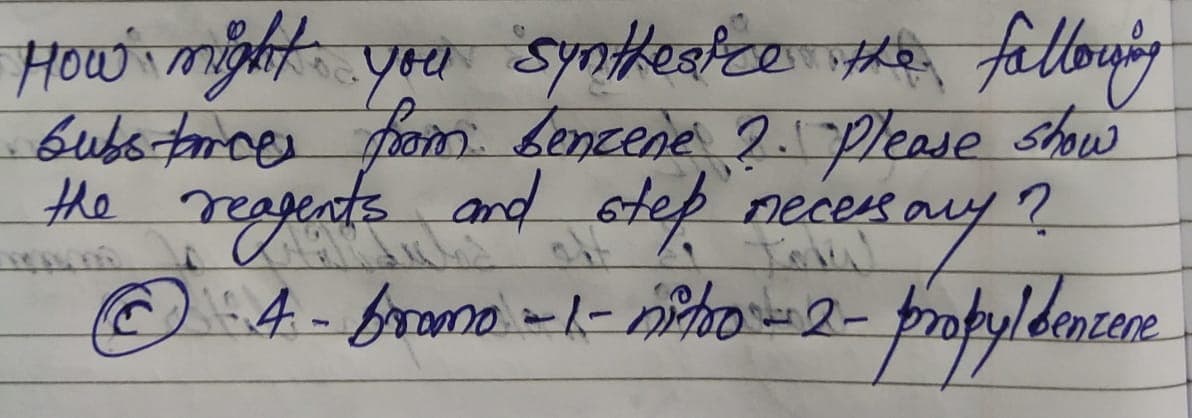 How might you synthesize the following
substances from benzene ?. please show
the reagents and step necessary ?
(c) 4 - bromo - 1 - nitro - 2 - propylbenzene